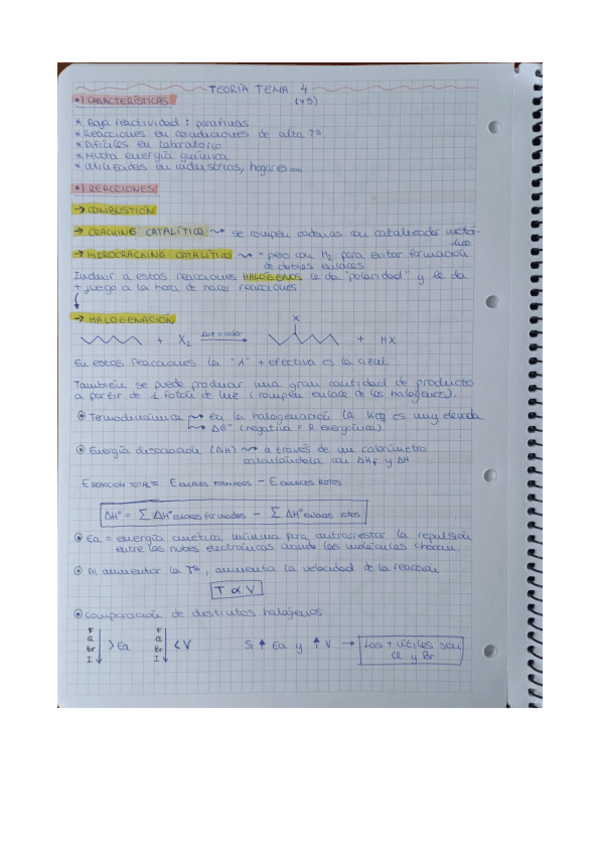 TEORÍA TEMA 4
(y 5)
•) CARACTERÍSTICAS
* Baja reactividad: parafinas
* Reacciones en condiciones de alta Tª
* Difíciles en laboratorio
* Mucha energía química
* Utilizadas en industrias, hogares...
•) REACCIONES
→ COMBUSTIÓN
→ CRACKING CATALÍTICO ⇝ se rompen cadenas con catalizador metálico
→ HIDROCRACKING CATALÍTICO ⇝ = pero con H₂ para evitar formación
de dobles enlaces
Incluir a estas reacciones HALÓGENOS le da "polaridad" y le da
+ juego a la hora de hacer reacciones
→ HALOGENACIÓN
+ X₂ luz o calor → X + HX
En estas reacciones la "λ" + efectiva es la azul
También se puede producir una gran cantidad de producto
a partir de 1 fotón de luz (rompen enlace de los halógenos).
⊙ Termodinámica ⇝ en la halogenación la Keq es muy elevada
⇝ ΔG° (negativa = R. exergónica).
⊙ Energía disociación (ΔH) ⇝ a través de un calorímetro
calculándola con ΔHf y ΔH
E REACCIÓN TOTAL = E ENLACES FORMADOS − E ENLACES ROTOS
ΔH° = Σ ΔH° enlaces formados − Σ ΔH° enlaces rotos
⊙ Ea = energía cinética mínima para contrarrestar la repulsión
entre las nubes electrónicas cuando las moléculas chocan.
⊙ Al aumentar la Tª, aumenta la velocidad de la reacción
T ∝ V
⊙ Comparación de distintos halógenos
F F
Cl Cl
Br > Ea Br < V Si ↑ Ea y ↑ V → Los + útiles son
I I Cl y Br